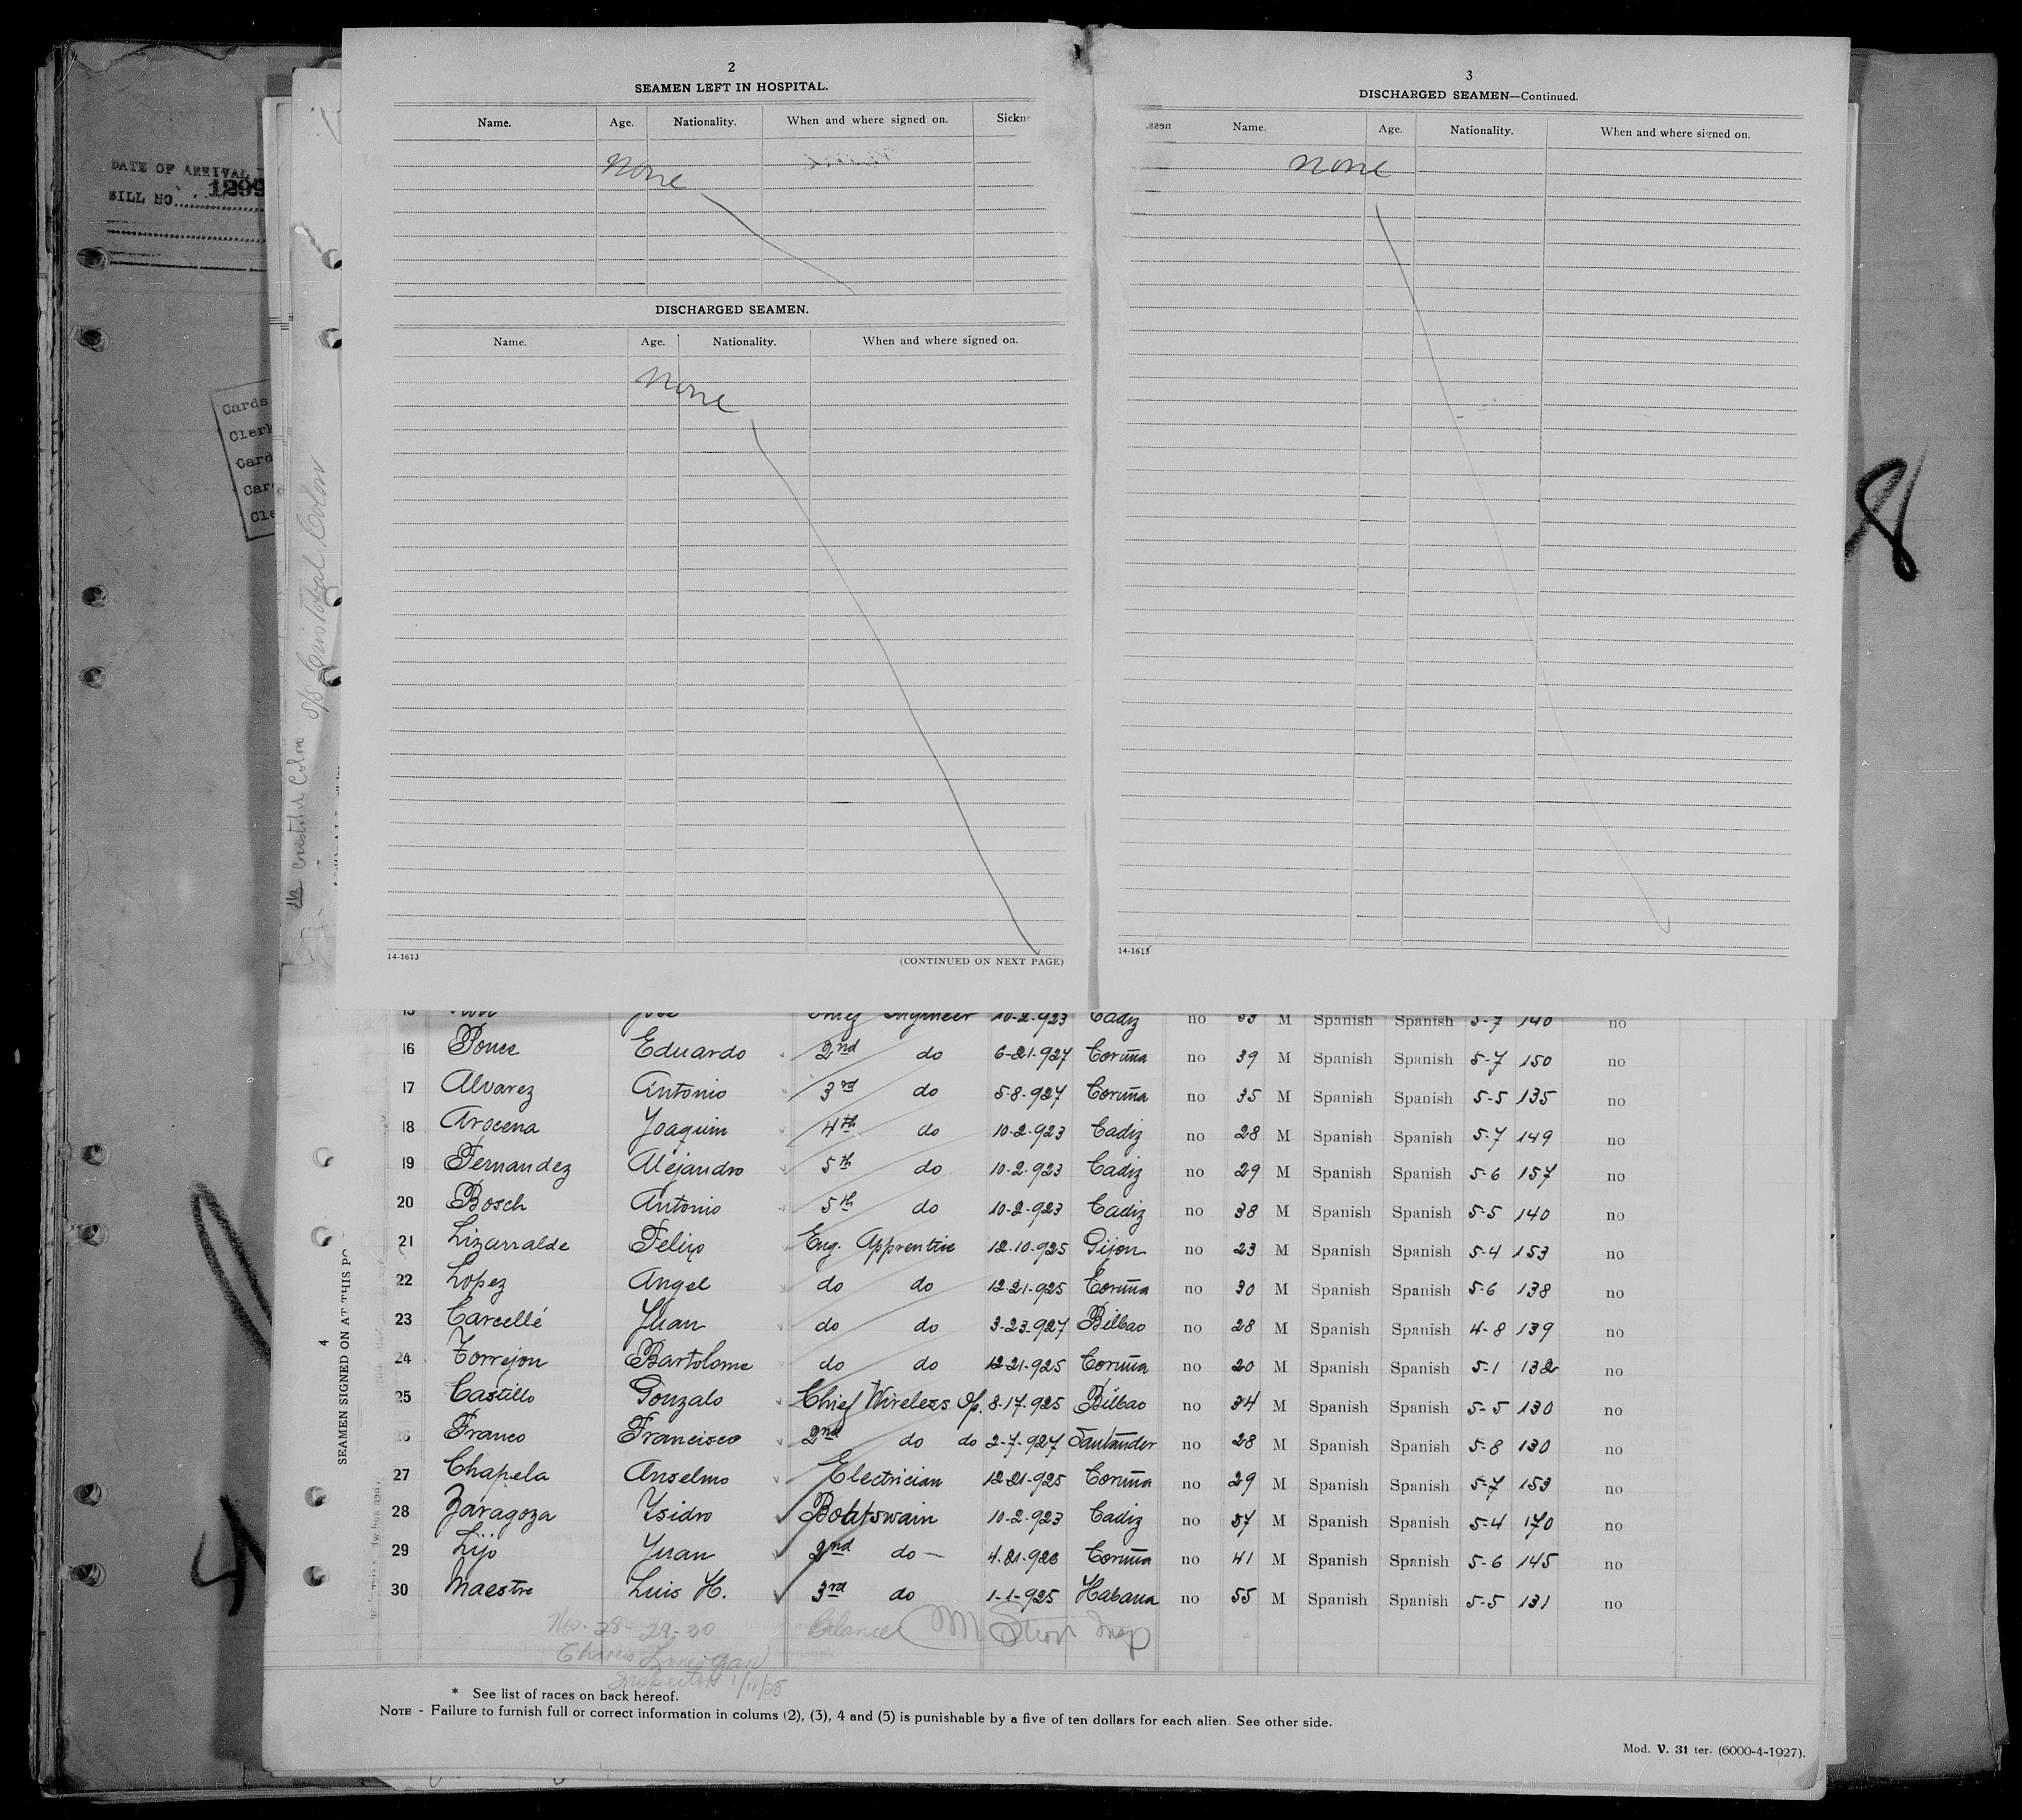 DATE OF ARRIVAL
BILL NO. 1299
Cards
Clerk
Card
Car
Cle
Cristobal Colon
S/S Cristobal Colon
8
2
SEAMEN LEFT IN HOSPITAL.
Name. Age. Nationality. When and where signed on. Sickn
None
DISCHARGED SEAMEN.
Name. Age. Nationality. When and where signed on.
None
14-1613 (CONTINUED ON NEXT PAGE)
3
DISCHARGED SEAMEN—Continued.
Name. Age. Nationality. When and where signed on.
None
14-1613
4
SEAMEN SIGNED ON AT THIS PO
15 Jose Chief Engineer 10-2-923 Cadiz no M Spanish Spanish 5-7 140 no
16 Ponce Eduardo 2nd do 6-21-927 Coruña no 39 M Spanish Spanish 5-7 150 no
17 Alvarez Antonio 3rd do 5-8-927 Coruña no 35 M Spanish Spanish 5-5 135 no
18 Arocena Joaquim 4th do 10-2-923 Cadiz no 28 M Spanish Spanish 5-7 149 no
19 Fernandez Alejandro 5th do 10-2-923 Cadiz no 29 M Spanish Spanish 5-6 157 no
20 Bosch Antonio 5th do 10-2-923 Cadiz no 38 M Spanish Spanish 5-5 140 no
21 Lizarralde Felix Eng. Apprentie 12-10-925 Gijon no 23 M Spanish Spanish 5-4 153 no
22 Lopez Angel do do 12-21-925 Coruña no 30 M Spanish Spanish 5-6 138 no
23 Carcellé Juan do do 3-23-927 Bilbao no 28 M Spanish Spanish 4-8 139 no
24 Torrejon Bartolome do do 12-21-925 Coruña no 20 M Spanish Spanish 5-1 132 no
25 Castillo Gonzalo Chief Wireless Op. 8-17-925 Bilbao no 34 M Spanish Spanish 5-5 130 no
26 Franco Francisco 2nd do do 2-7-927 Santander no 28 M Spanish Spanish 5-8 130 no
27 Chapela Anselmo Electrician 12-21-925 Coruña no 29 M Spanish Spanish 5-7 153 no
28 Zaragoza Ysidro Boatswain 10-2-923 Cadiz no 57 M Spanish Spanish 5-4 170 no
29 Lijo Juan 2nd do — 4-21-926 Coruña no 41 M Spanish Spanish 5-6 145 no
30 Maestre Luis H. 3rd do 1-1-925 Habana no 55 M Spanish Spanish 5-5 131 no
Nos. 28-29-30 Balance
Inspector 1/11/28
* See list of races on back hereof.
NOTE - Failure to furnish full or correct information in colums (2), (3), 4 and (5) is punishable by a five of ten dollars for each alien. See other side.
Mod. V. 31 ter. (6000-4-1927).